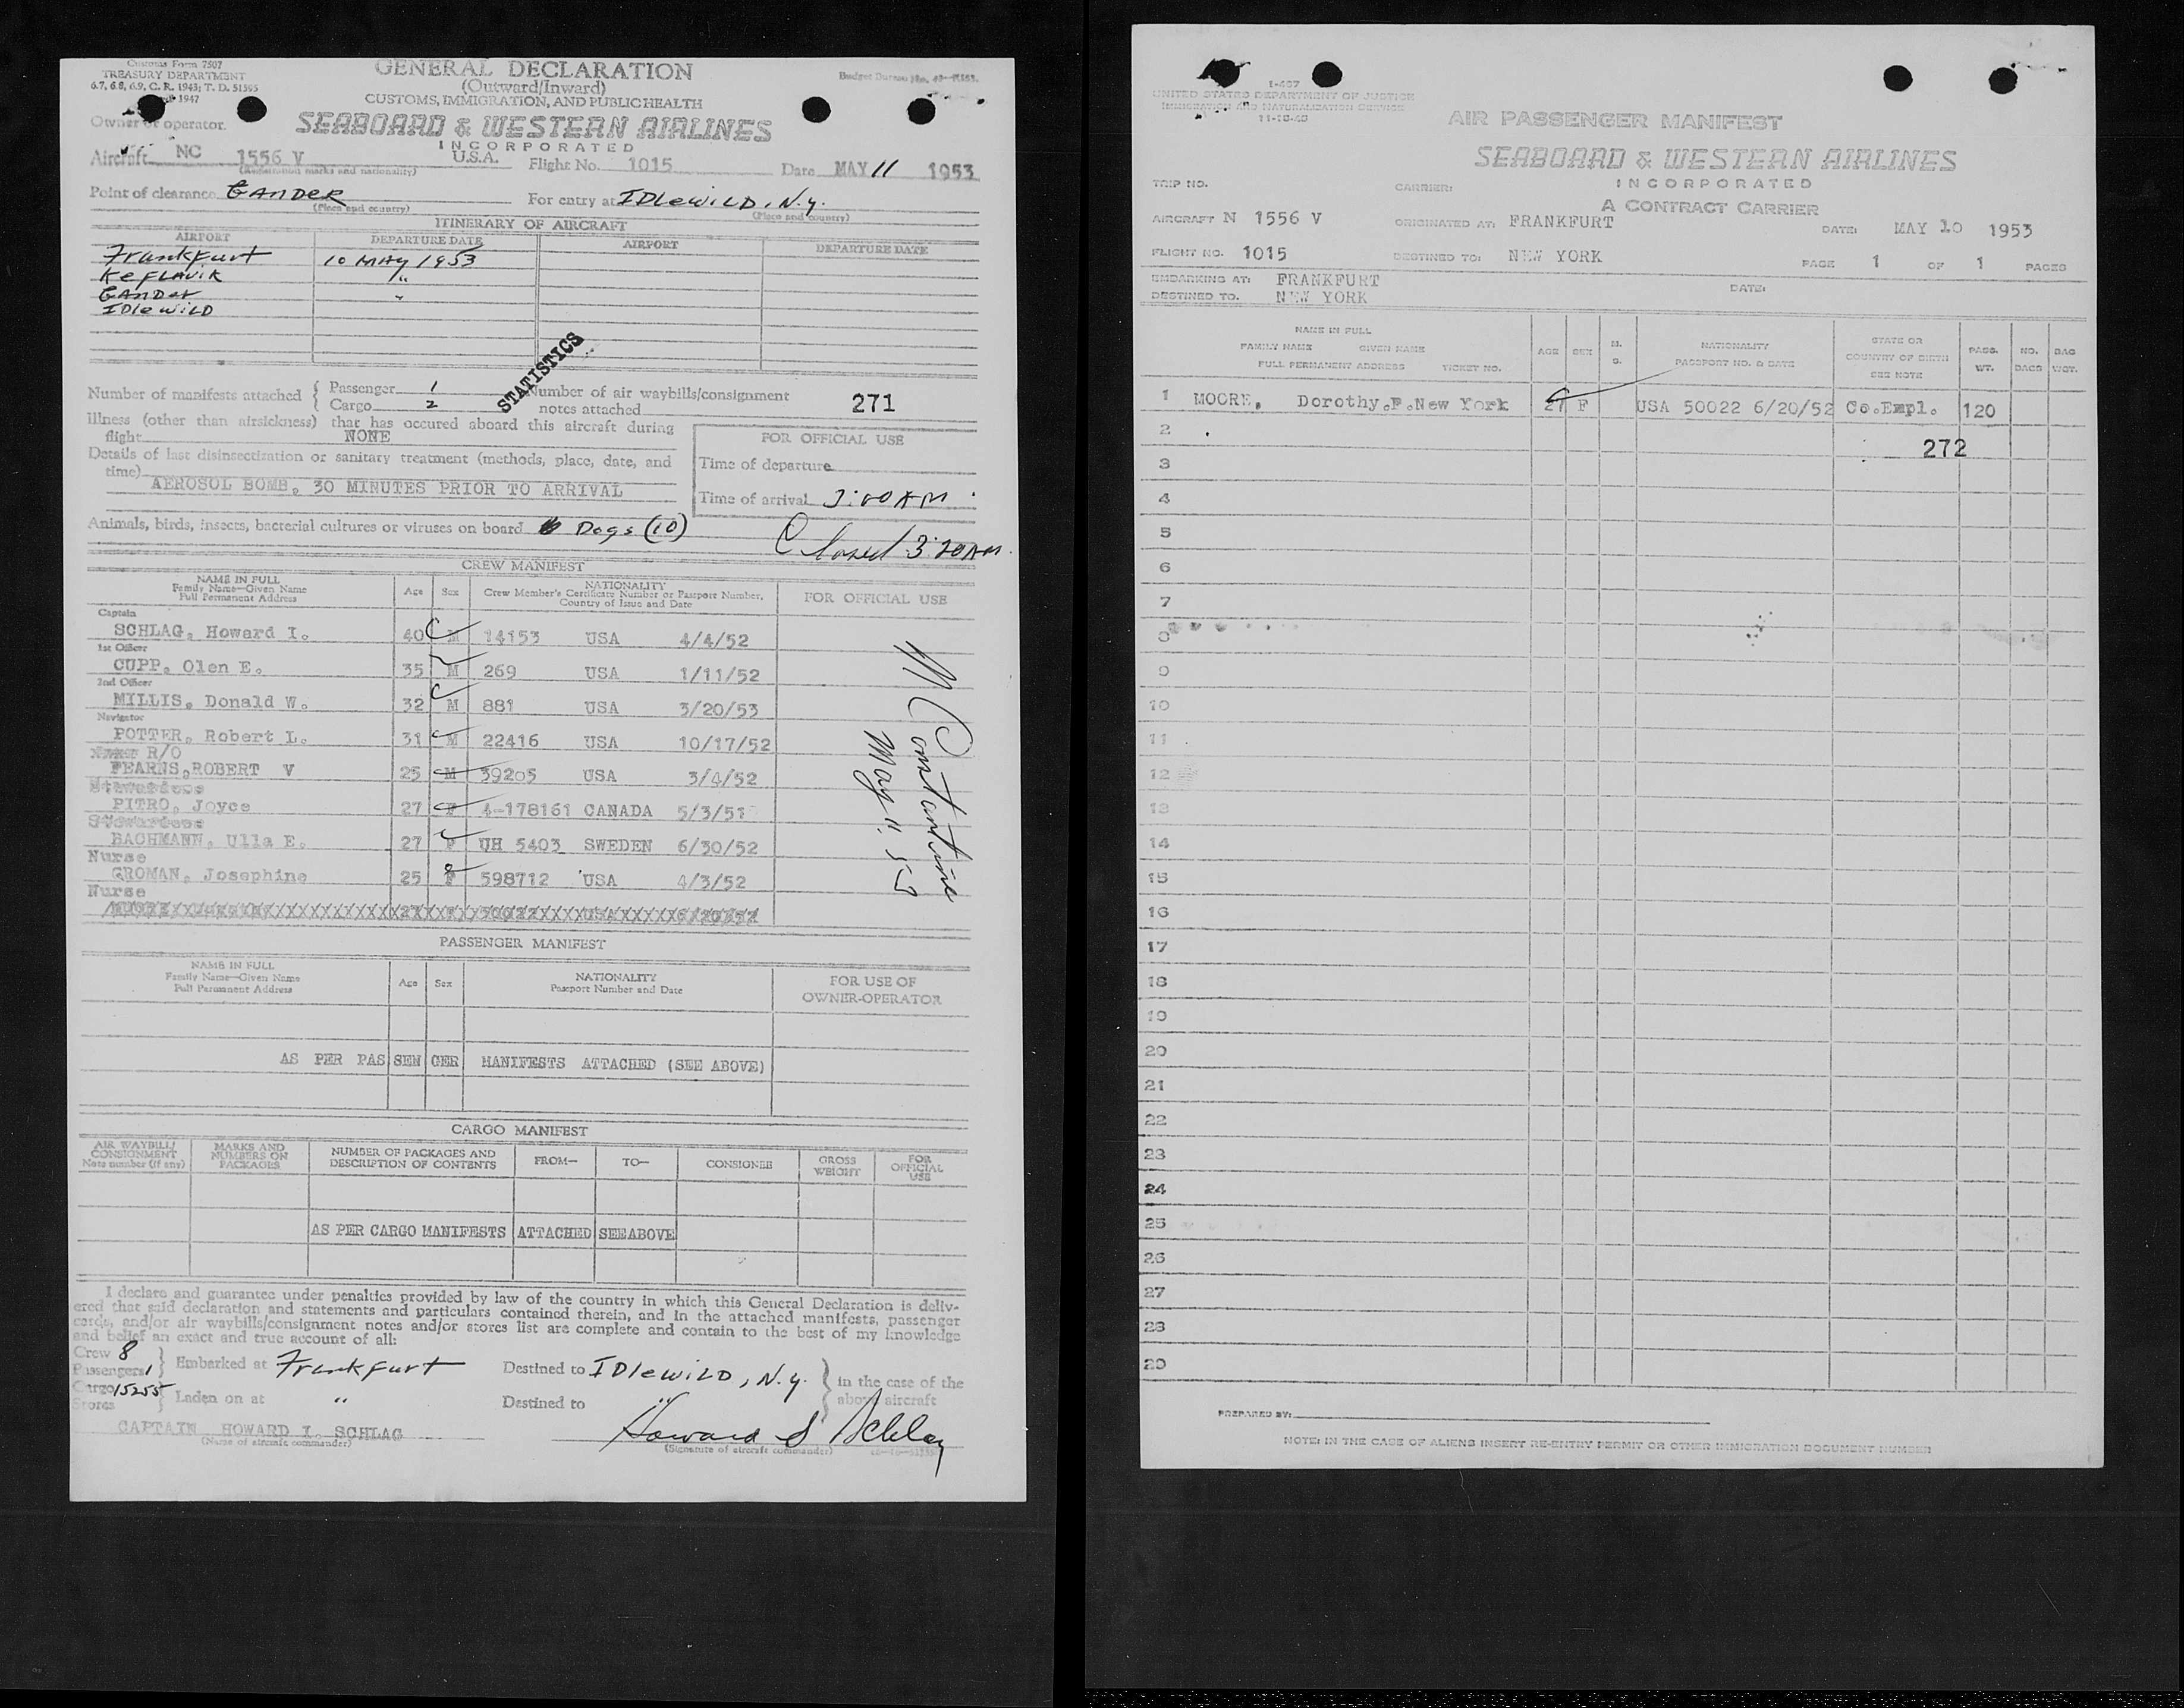 Customs Form 7507
TREASURY DEPARTMENT
6.7, 6.8, 6.9, C. R. 1943; T. D. 51595
1947
GENERAL DECLARATION
(Outward/Inward)
CUSTOMS, IMMIGRATION, AND PUBLIC HEALTH
Owner or operator.
SEABOARD & WESTERN AIRLINES
INCORPORATED
Aircraft NC 1556 V U.S.A. Flight No. 1015 Date MAY 11 1953
(Registration marks and nationality)
Point of clearance GANDER For entry at IDLEWILD, N.Y.
(Place and country) (Place and country)
ITINERARY OF AIRCRAFT
AIRPORT DEPARTURE DATE AIRPORT DEPARTURE DATE
Frankfurt 10 MAY 1953
KEFLAVIK "
GANDER "
IDLEWILD
STATISTICS
Number of manifests attached { Passenger 1
Cargo 2
Number of air waybills/consignment
notes attached 271
Illness (other than airsickness) that has occured aboard this aircraft during
flight NONE
Details of last disinsectization or sanitary treatment (methods, place, date, and
time)
AEROSOL BOMB, 30 MINUTES PRIOR TO ARRIVAL
FOR OFFICIAL USE
Time of departure
Time of arrival 3:00 AM
Animals, birds, insects, bacterial cultures or viruses on board Dogs (10)
Closed 3:20AM.
CREW MANIFEST
NAME IN FULL
Family Name—Given Name
Full Permanent Address
Age Sex
NATIONALITY
Crew Member's Certificate Number or Passport Number,
Country of Issue and Date
FOR OFFICIAL USE
Captain
SCHLAG, Howard I. 40 M 14153 USA 4/4/52
1st Officer
CUPP, Olen E. 35 M 269 USA 1/11/52
2nd Officer
MILLIS, Donald W. 32 M 881 USA 3/20/53
Navigator
POTTER, Robert L. 31 M 22416 USA 10/17/52
R/O
FEARNS, ROBERT V 25 M 39205 USA 3/4/52
Stewardess
PITRO, Joyce 27 F 4-178161 CANADA 5/3/51
Stewardess
BACHMANN, Ulla E. 27 F UH 5403 SWEDEN 6/30/52
Nurse
GROMAN, Josephine 25 F 598712 USA 4/3/52
Nurse
M Constantine
May 11, 53
PASSENGER MANIFEST
NAME IN FULL
Family Name—Given Name
Full Permanent Address
Age Sex
NATIONALITY
Passport Number and Date
FOR USE OF
OWNER-OPERATOR
AS PER PASSENGER MANIFESTS ATTACHED (SEE ABOVE)
CARGO MANIFEST
AIR WAYBILL/
CONSIGNMENT
Note number (if any)
MARKS AND
NUMBERS ON
PACKAGES
NUMBER OF PACKAGES AND
DESCRIPTION OF CONTENTS
FROM— TO— CONSIGNEE
GROSS
WEIGHT
FOR
OFFICIAL
USE
AS PER CARGO MANIFESTS ATTACHED SEE ABOVE
I declare and guarantee under penalties provided by law of the country in which this General Declaration is deliv-
ered that said declaration and statements and particulars contained therein, and in the attached manifests, passenger
cards, and/or air waybills/consignment notes and/or stores list are complete and contain to the best of my knowledge
and belief an exact and true account of all:
Crew 8
Passengers 1 } Embarked at Frankfurt Destined to IDLEWILD, N.Y. } in the case of the
Cargo 15255
Stores } Laden on at " Destined to " above aircraft
CAPTAIN HOWARD I. SCHLAG Howard I Schlag
(Name of aircraft commander) (Signature of aircraft commander)
I-407
UNITED STATES DEPARTMENT OF JUSTICE
IMMIGRATION AND NATURALIZATION SERVICE
11-18-48
AIR PASSENGER MANIFEST
SEABOARD & WESTERN AIRLINES
INCORPORATED
A CONTRACT CARRIER
TRIP NO. CARRIER:
AIRCRAFT N 1556 V ORIGINATED AT: FRANKFURT DATE: MAY 10 1953
FLIGHT NO. 1015 DESTINED TO: NEW YORK PAGE 1 OF 1 PAGES
EMBARKING AT: FRANKFURT DATE:
DESTINED TO. NEW YORK
NAME IN FULL
FAMILY NAME GIVEN NAME
FULL PERMANENT ADDRESS TICKET NO.
AGE SEX M. S.
NATIONALITY
PASSPORT NO. & DATE
STATE OR
COUNTRY OF BIRTH
SEE NOTE
PASS. WT.
NO. BAGS
BAG WGT.
1 MOORE, Dorothy.P.New York 27 F USA 50022 6/20/52 Co.Empl. 120
2
272
3
4
5
6
7
8
9
10
11
12
13
14
15
16
17
18
19
20
21
22
23
24
25
26
27
28
29
PREPARED BY:
NOTE: IN THE CASE OF ALIENS INSERT RE-ENTRY PERMIT OR OTHER IMMIGRATION DOCUMENT NUMBER